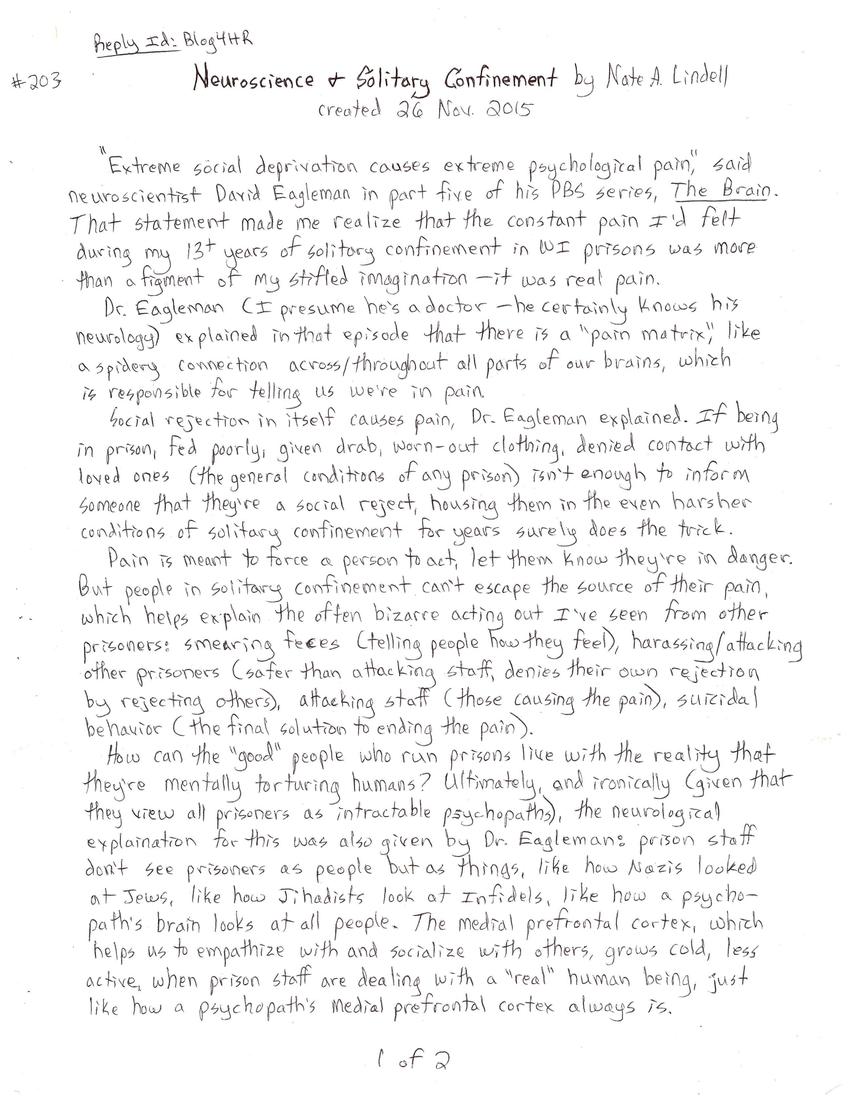 Reply Id: Blog4HR
#203
Neuroscience + Solitary Confinement by Nate A. Lindell
created 26 Nov. 2015
"Extreme social deprivation causes extreme psychological pain," said
neuroscientist David Eagleman in part five of his PBS series, The Brain.
That statement made me realize that the constant pain I'd felt
during my 13+ years of solitary confinement in WI prisons was more
than a figment of my stifled imagination – it was real pain.
Dr. Eagleman (I presume he's a doctor – he certainly knows his
neurology) explained in that episode that there is a "pain matrix," like
a spidery connection across/throughout all parts of our brains, which
is responsible for telling us we're in pain.
Social rejection in itself causes pain, Dr. Eagleman explained. If being
in prison, fed poorly, given drab, worn-out clothing, denied contact with
loved ones (the general conditions of any prison) isn't enough to inform
someone that they're a social reject, housing them in the even harsher
conditions of solitary confinement for years surely does the trick.
Pain is meant to force a person to act, let them know they're in danger.
But people in solitary confinement can't escape the source of their pain,
which helps explain the often bizarre acting out I've seen from other
prisoners: smearing feces (telling people how they feel), harassing/attacking
other prisoners (safer than attacking staff, denies their own rejection
by rejecting others), attacking staff (those causing the pain), suicidal
behavior (the final solution to ending the pain).
How can the "good" people who run prisons live with the reality that
they're mentally torturing humans? Ultimately, and ironically (given that
they view all prisoners as intractable psychopaths), the neurological
explaination for this was also given by Dr. Eagleman: prison staff
don't see prisoners as people but as things, like how Nazis looked
at Jews, like how Jihadists look at Infidels, like how a psycho-
path's brain looks at all people. The medial prefrontal cortex, which
helps us to empathize with and socialize with others, grows cold, less
active, when prison staff are dealing with a "real" human being, just
like how a psychopath's medial prefrontal cortex always is.
1 of 2